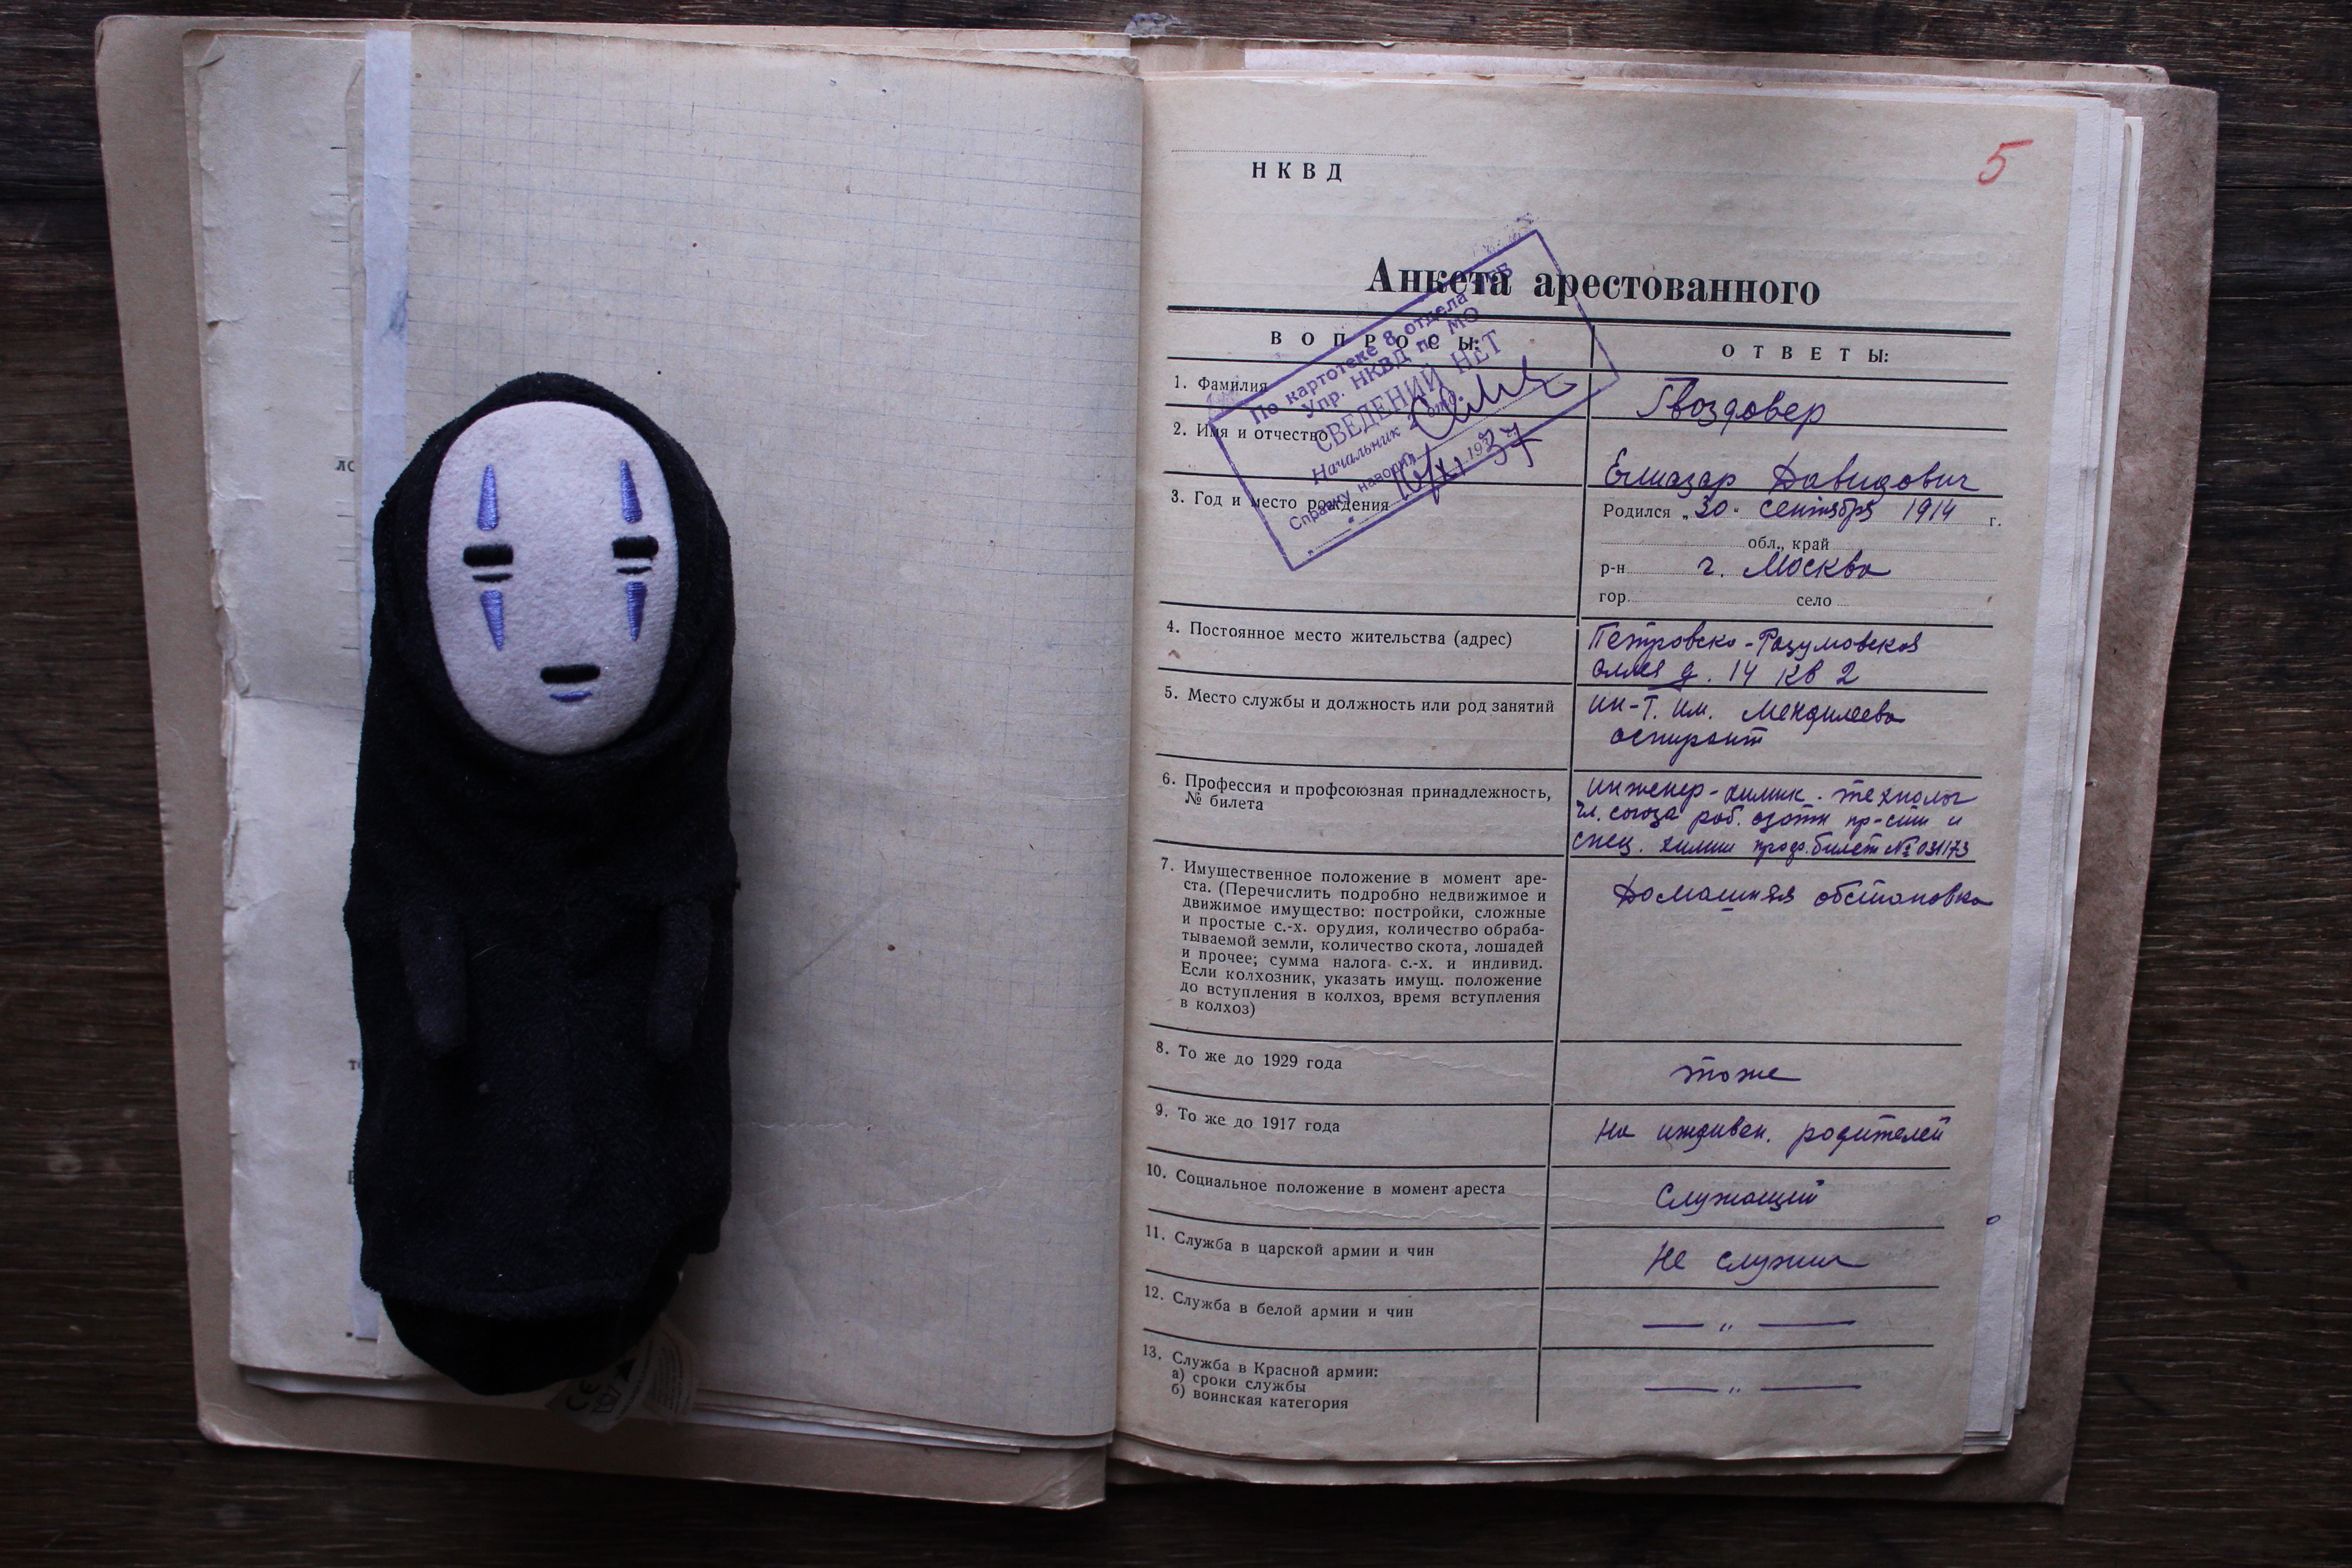 5
НКВД
Анкета арестованного
ВОПРОСЫ:
ОТВЕТЫ:
По картотеке 8 отдела
Упр. НКВД по МО
СВЕДЕНИЙ НЕТ
Начальник отд.
Справку наводил
16/XI 1937 г.
1. Фамилия
Гвоздовер
2. Имя и отчество
Елиазар Давидович
3. Год и место рождения
Родился „30“ сентября 1914 г.
обл., край
р-н г. Москва
гор. село
4. Постоянное место жительства (адрес)
Петровско-Разумовская
аллея д. 14 кв 2
5. Место службы и должность или род занятий
ин-т. им. Менделеева
аспирант
6. Профессия и профсоюзная принадлежность,
№ билета
инженер-химик-технолог
чл. союза раб. азотн пр-сти и
спец. химии проф. билет № 031173
7. Имущественное положение в момент аре-
ста. (Перечислить подробно недвижимое и
движимое имущество: постройки, сложные
и простые с.-х. орудия, количество обраба-
тываемой земли, количество скота, лошадей
и прочее; сумма налога с.-х. и индивид.
Если колхозник, указать имущ. положение
до вступления в колхоз, время вступления
в колхоз)
Домашняя обстановка
8. То же до 1929 года
тоже
9. То же до 1917 года
на иждивен. родителей
10. Социальное положение в момент ареста
Служащий
11. Служба в царской армии и чин
Не служил
12. Служба в белой армии и чин
— „ —
13. Служба в Красной армии:
а) сроки службы
б) воинская категория
— „ —
CE